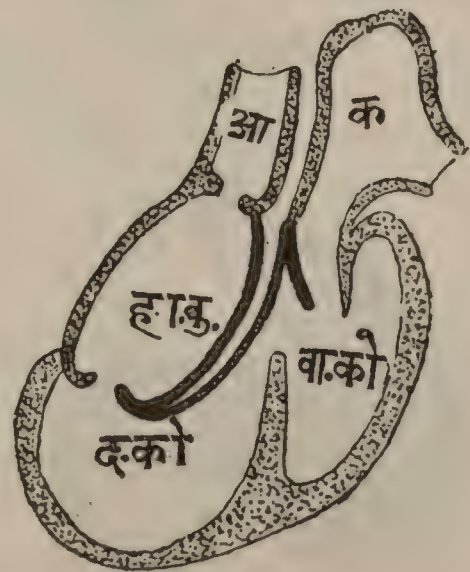 आ
क
ह.ा.बु.
वा.को
द.को